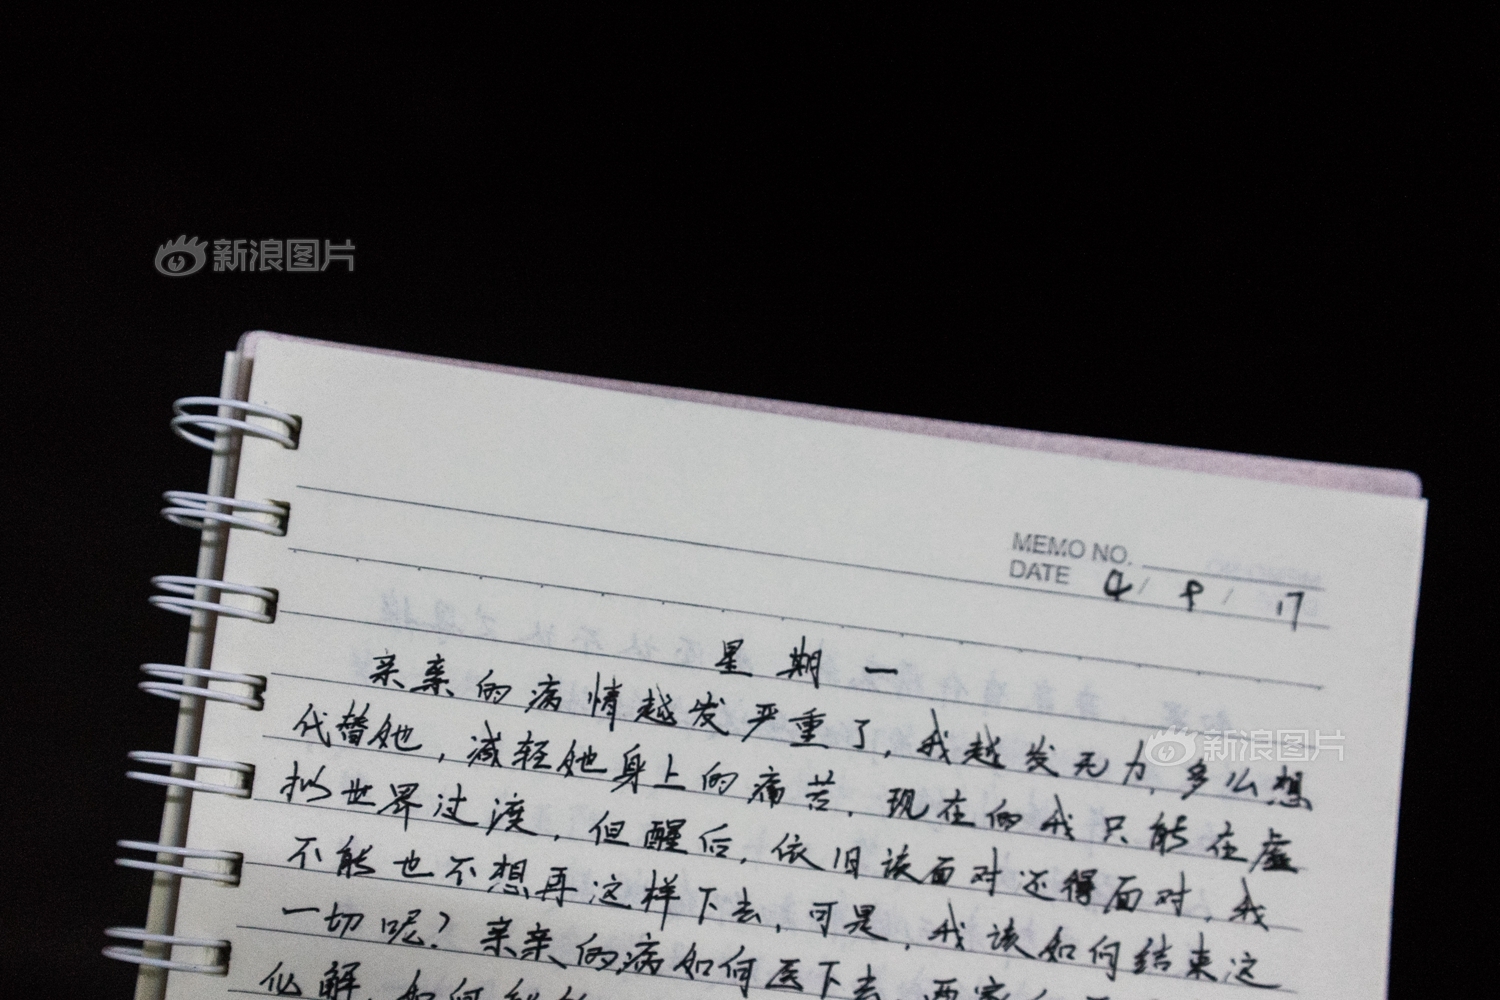 新浪图片
MEMO NO.
DATE 4/9/17
星期一
亲亲的病情越发严重了,我越发无力,多么想
代替她,减轻她身上的痛苦,现在的我只能在虚
拟世界过渡,但醒后,依旧该面对还得面对,我
不能也不想再这样下去,可是,我该如何结束这
一切呢?亲亲的病如何医下去,两家
化解,如何
新浪图片